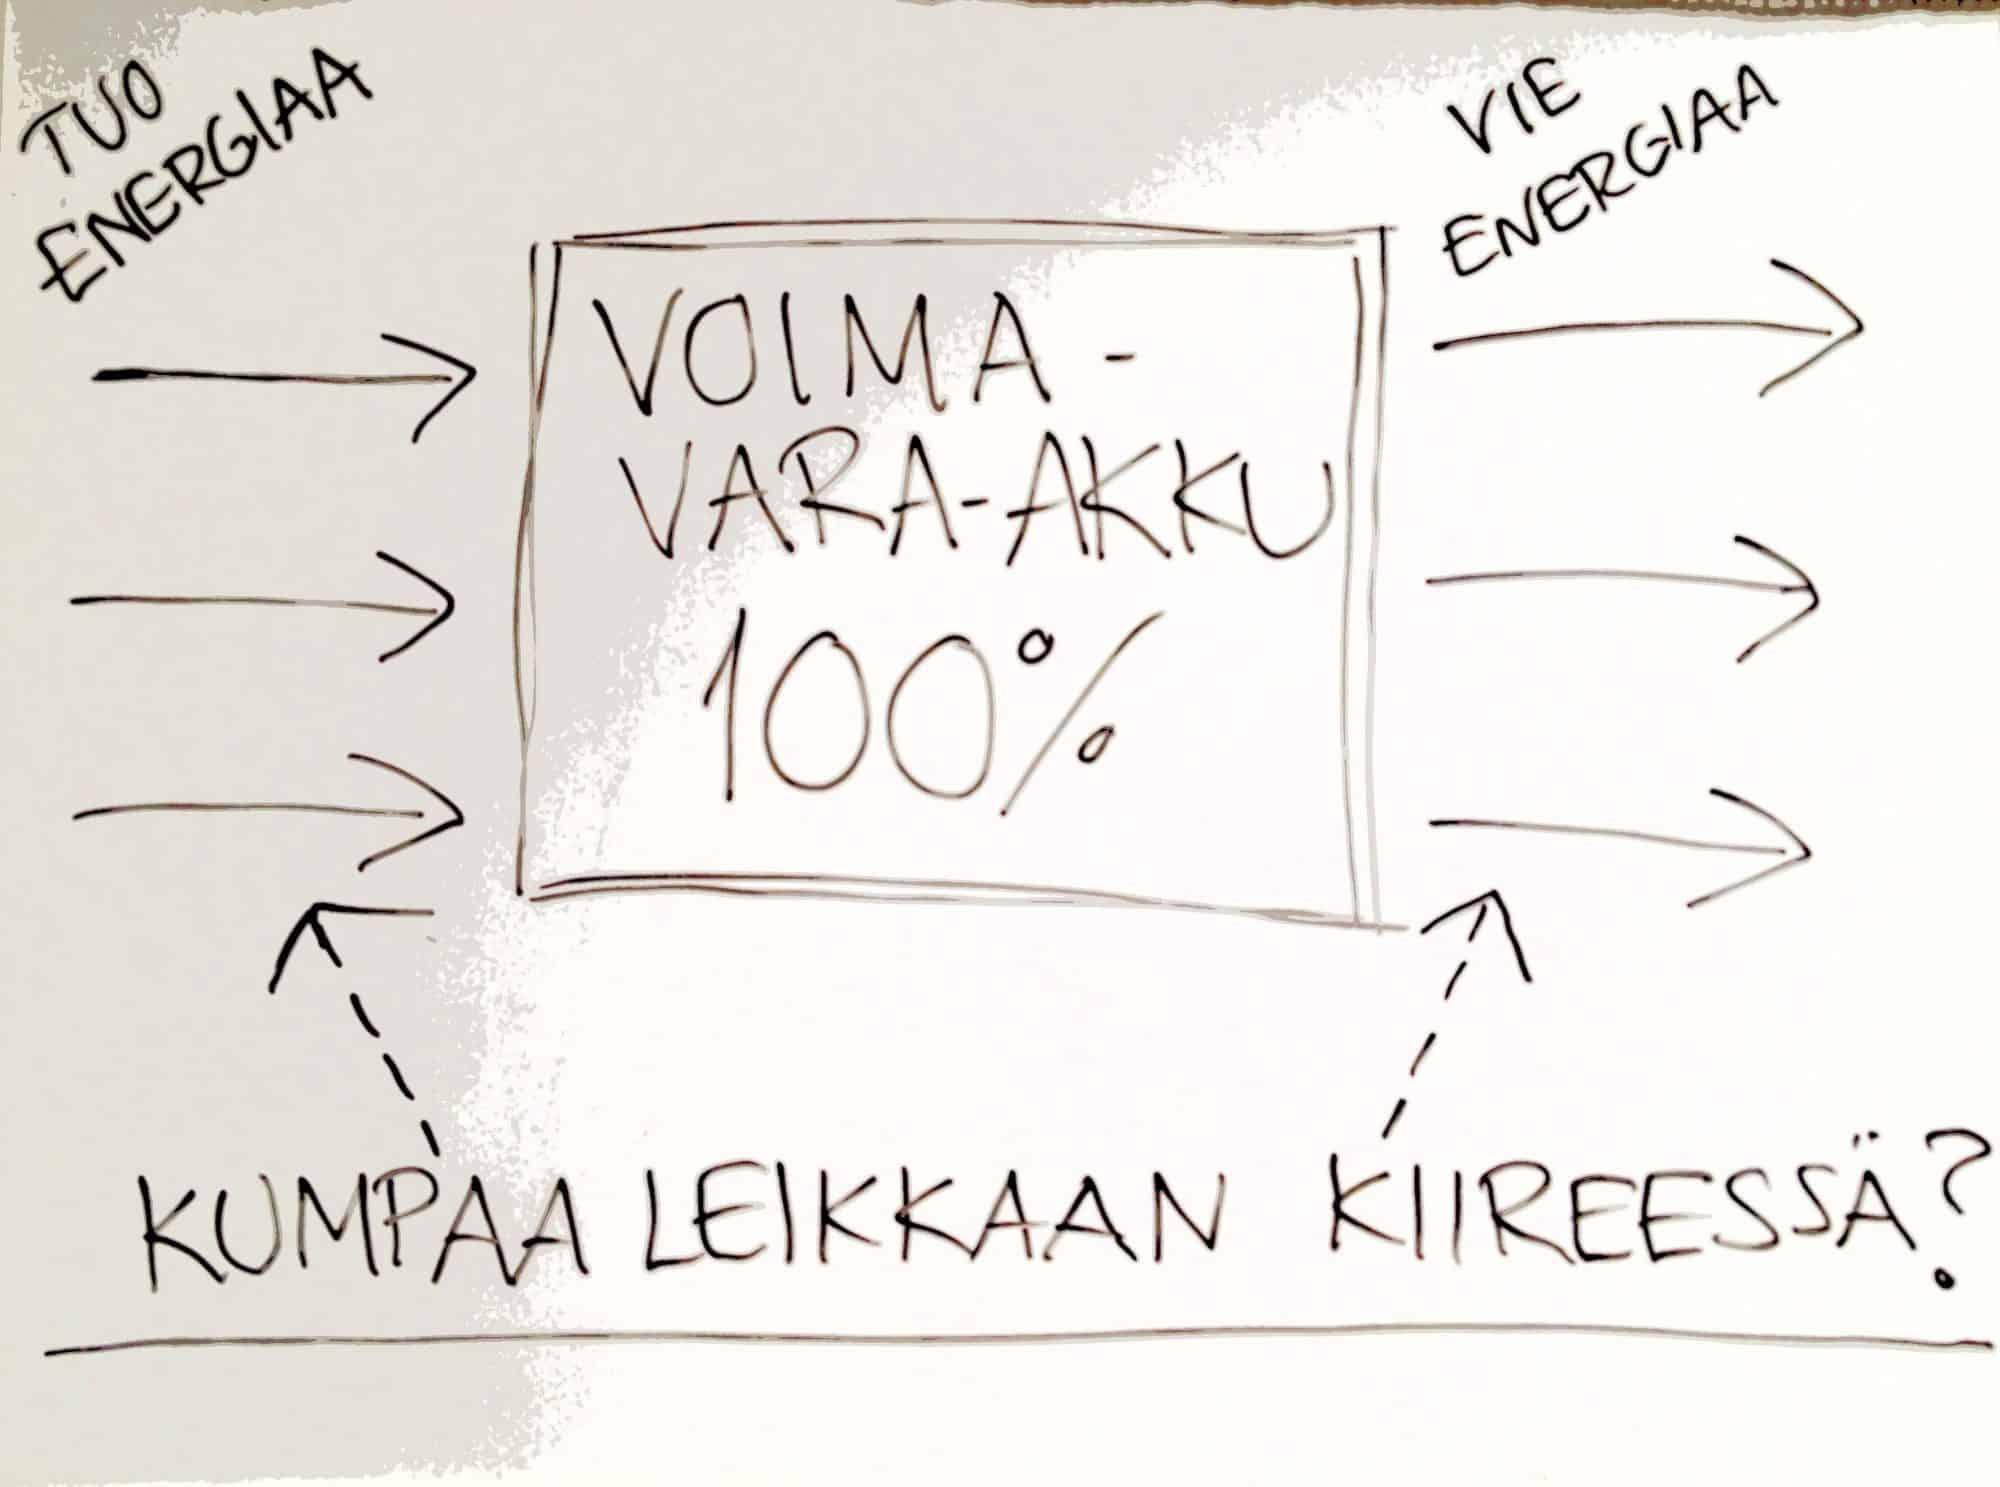 TUO
ENERGIAA
VIE
ENERGIAA
VOIMA-
VARA-AKKU
100%
KUMPAA LEIKKAAN KIIREESSÄ?